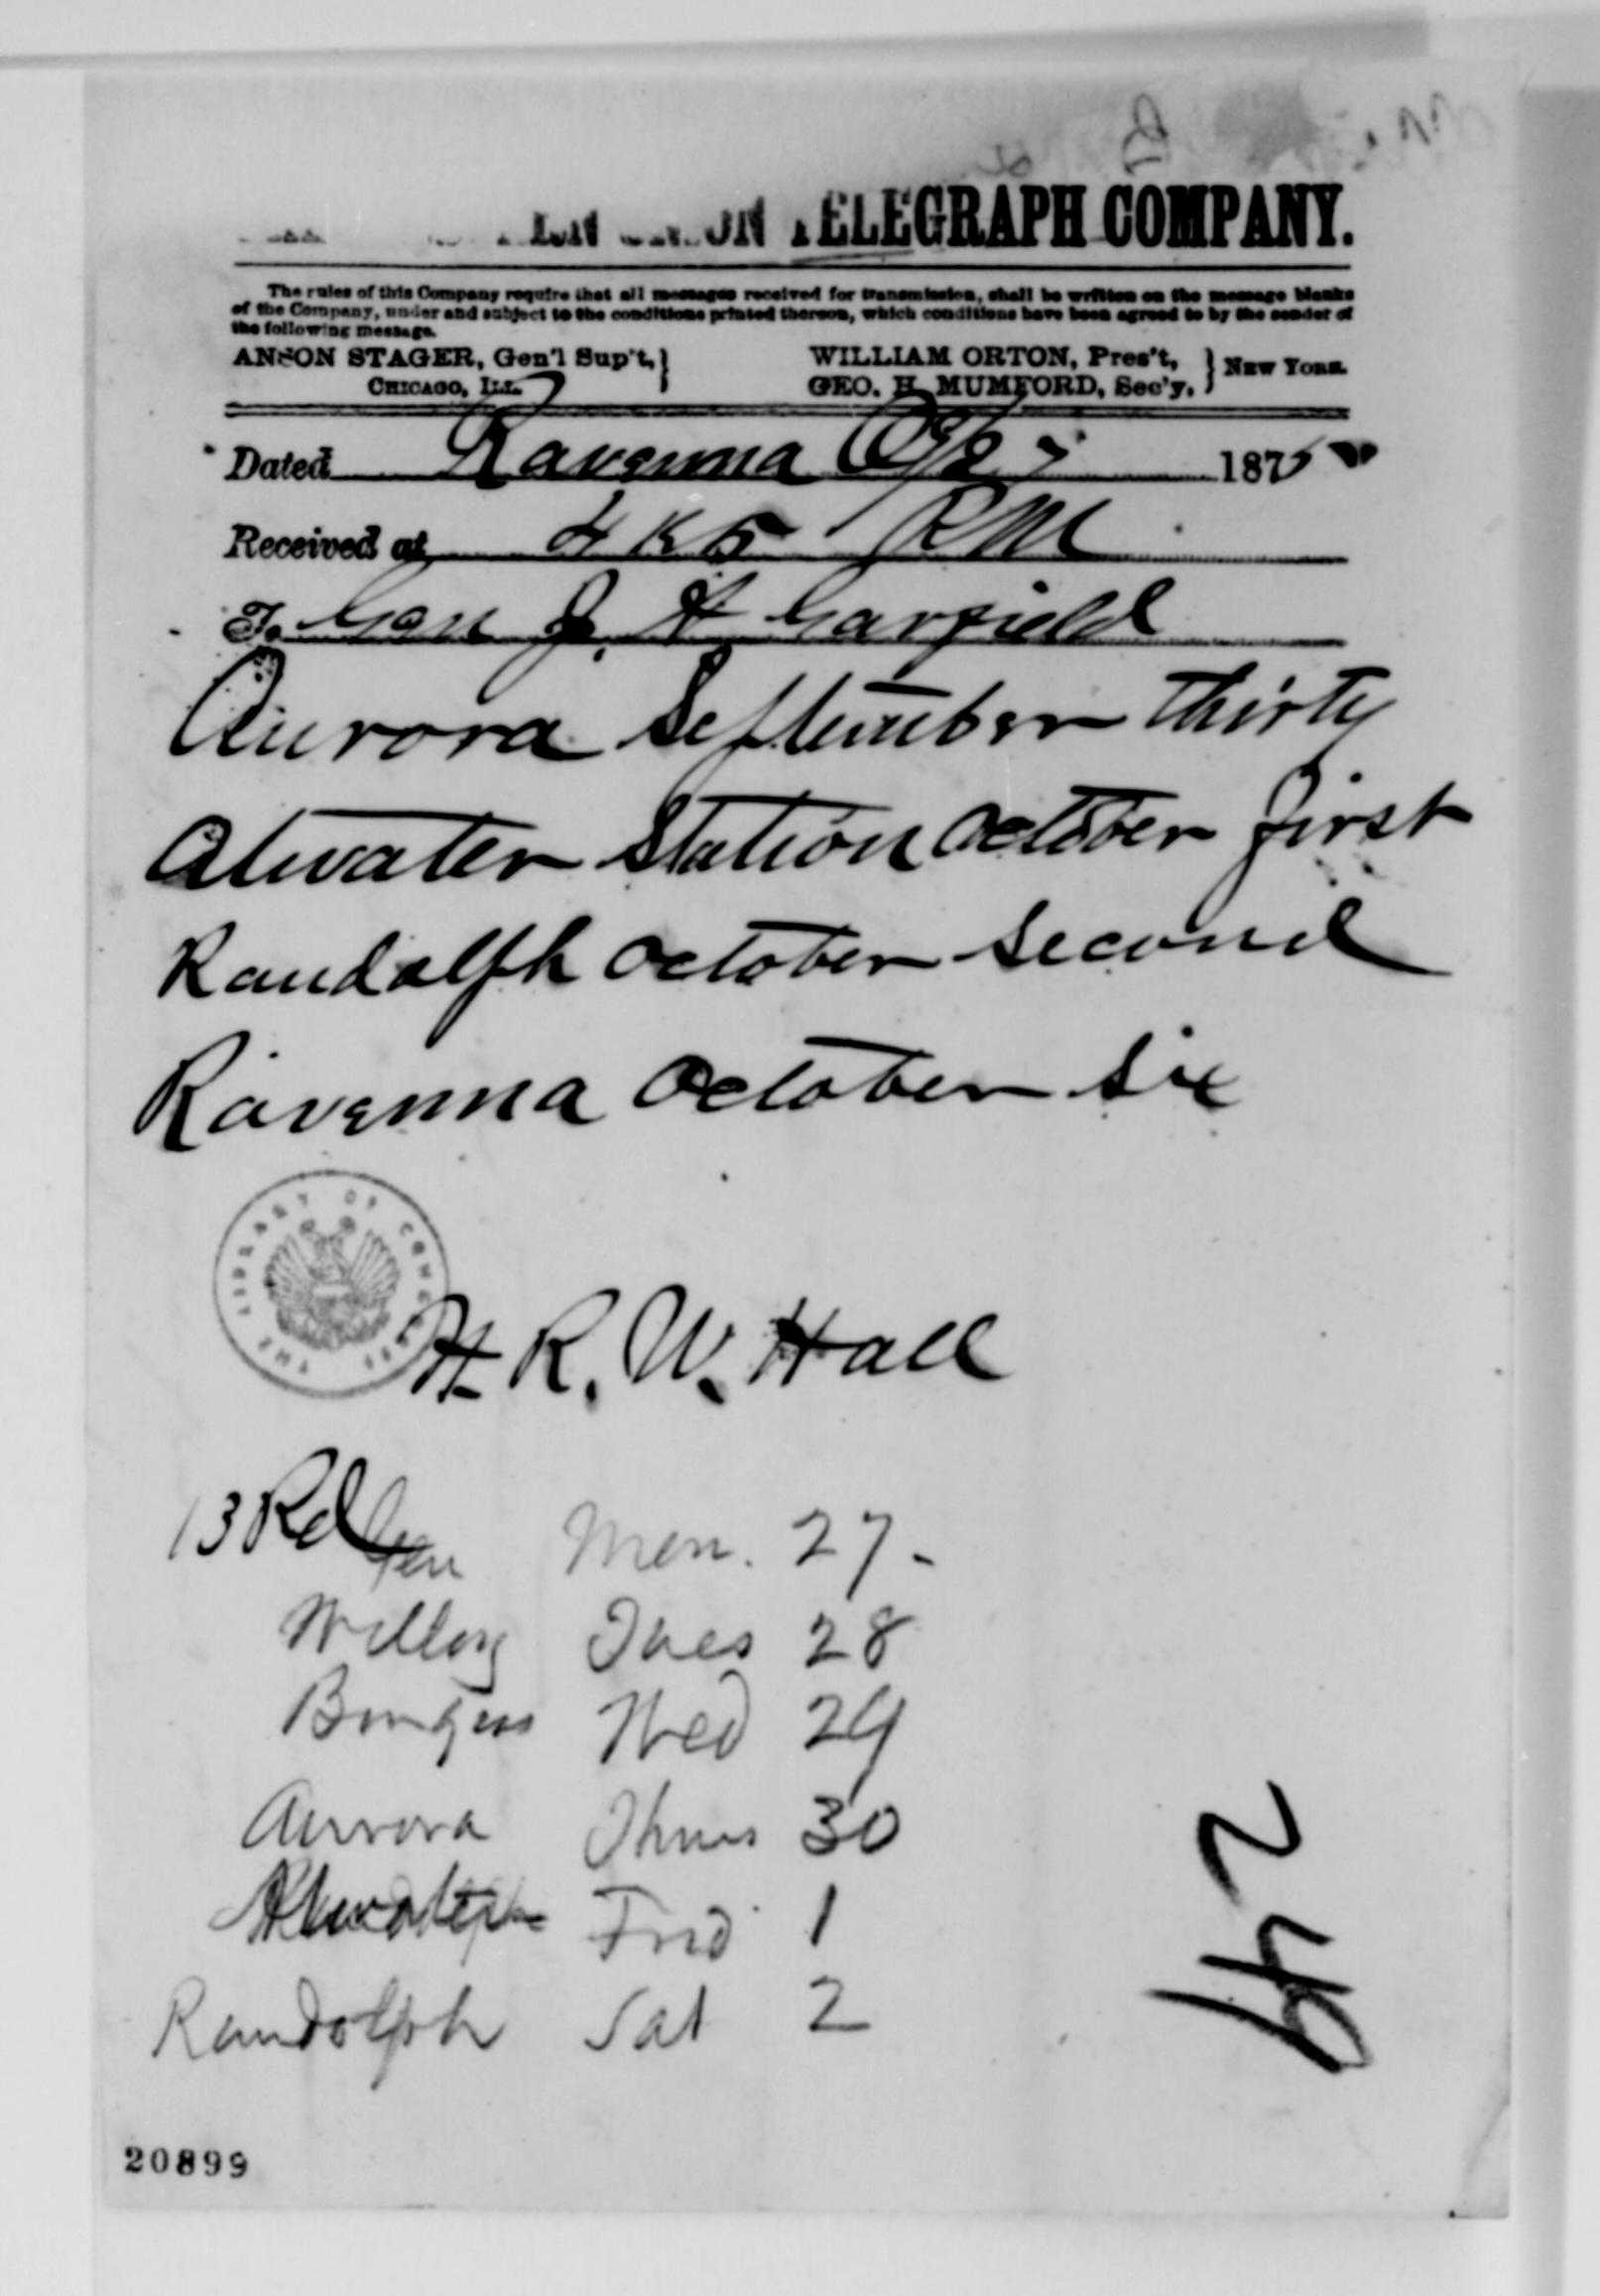 TELEGRAPH COMPANY.
The rules of this Company require that all messages received for transmission, shall be written on the message blanks
of the Company, under and subject to the conditions printed thereon, which conditions have been agreed to by the sender of
the following message.
ANSON STAGER, Gen'l Sup't, WILLIAM ORTON, Pres't,
CHICAGO, ILL. GEO. H. MUMFORD, Sec'y, NEW YORK.
Dated Ravenna 1875
Received at
To Gen J. A Garfield
Aurora September thirty
Atwater Station October first
Randolph October Second
Ravenna October Six
THE LIBRARY OF CONGRESS
H. R. W. Hall
13 Pd
Mon. 27.
Tues 28
Wed 29
Aurora Thurs 30
Atwater Frid 1
Randolph Sat 2
20899